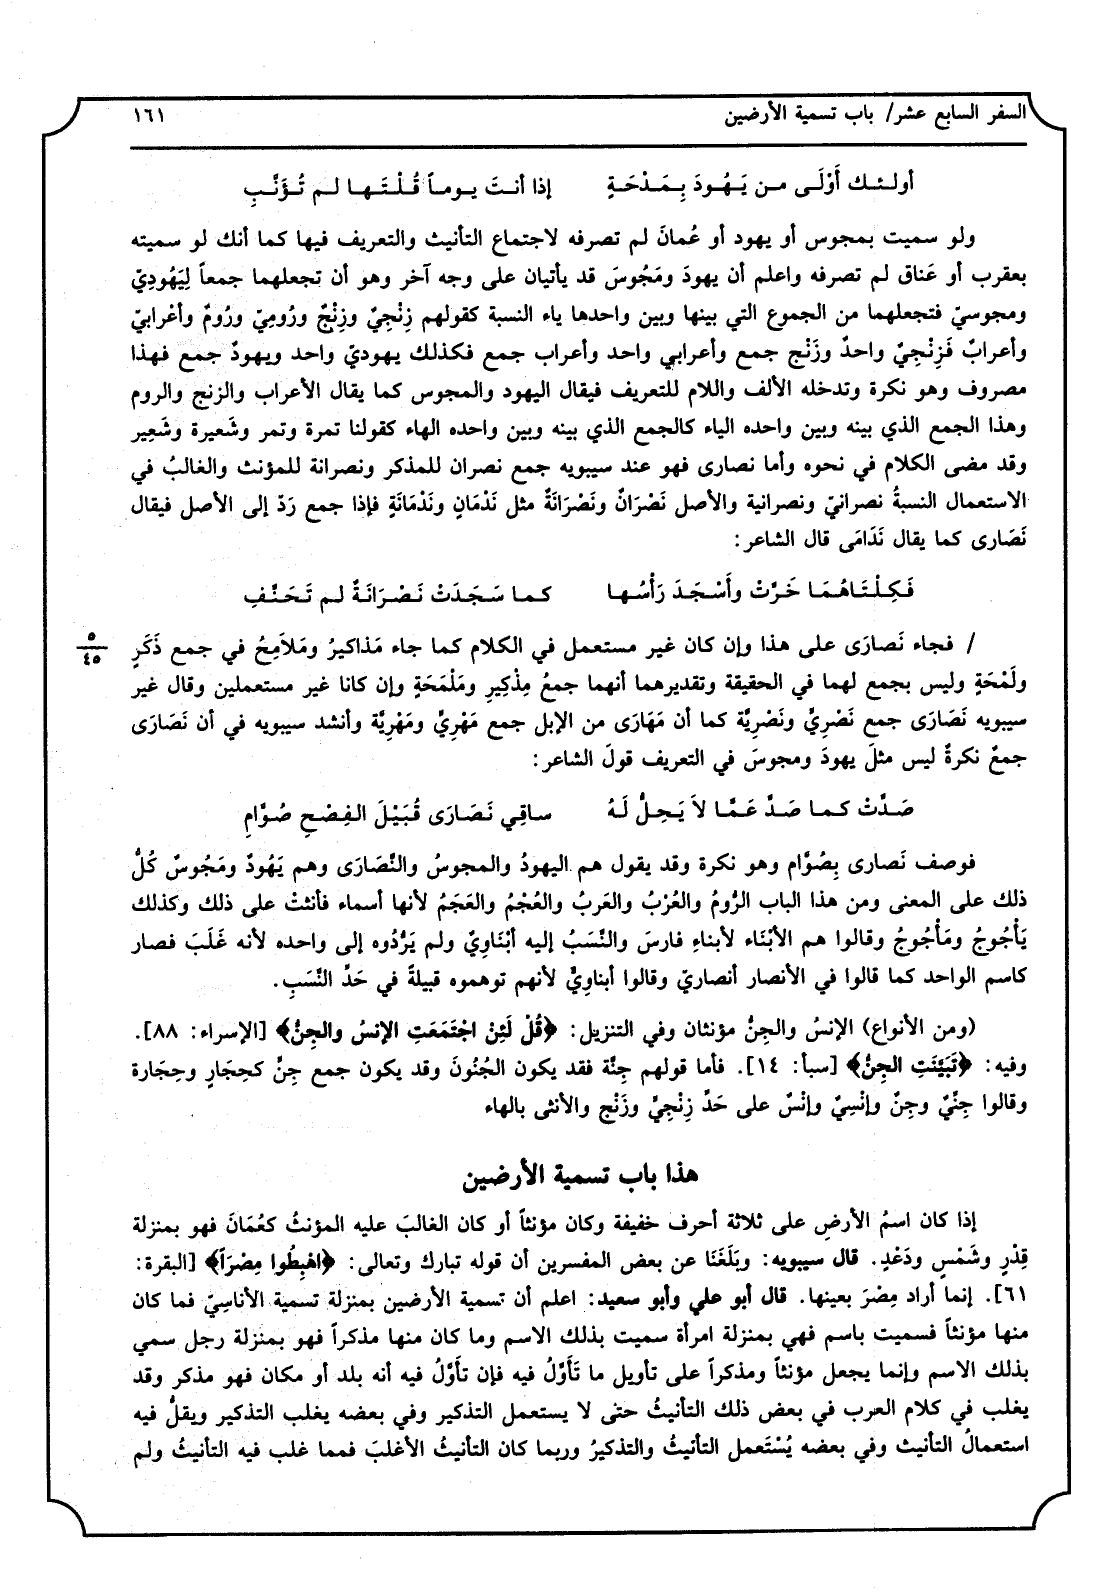 السفر السابع عشر/ باب تسمية الأرضين ١٦١
أولـئـك أَوْلَـى مـن يَـهُـودَ بِـمَـدْحَـةٍ إذا أنـتَ يـومـاً قُـلْـتَـهـا لـم تُـؤَنَّـبِ
ولو سميت بمجوس أو يهود أو عُمانَ لم تصرفه لاجتماع التأنيث والتعريف فيها كما أنك لو سميته
بعقرب أو عَناق لم تصرفه واعلم أن يهودَ ومَجُوسَ قد يأتيان على وجه آخر وهو أن تجعلهما جمعاً لِيَهُودِيّ
ومجوسيّ فتجعلهما من الجموع التي بينها وبين واحدها ياء النسبة كقولهم زِنْجِيٌّ وزِنْجٌ ورُومِيّ ورُومٌ وأعْرابيّ
وأعرابٌ فَزِنْجِيٌّ واحدٌ وزَنْج جمع وأعرابي واحد وأعراب جمع فكذلك يهوديّ واحد ويهودٌ جمع فهذا
مصروف وهو نكرة وتدخله الألف واللام للتعريف فيقال اليهود والمجوس كما يقال الأعراب والزنج والروم
وهذا الجمع الذي بينه وبين واحده الياء كالجمع الذي بينه وبين واحده الهاء كقولنا تمرة وتمر وشَعيرة وشَعِير
وقد مضى الكلام في نحوه وأما نصارى فهو عند سيبويه جمع نصران للمذكر ونصرانة للمؤنث والغالبُ في
الاستعمال النسبةُ نصرانيّ ونصرانية والأصل نَصْرَانٌ ونَصْرَانَةٌ مثل نَدْمَانٍ ونَدْمَانَةٍ فإذا جمع رَدّ إلى الأصل فيقال
نَصَارى كما يقال نَدَامَى قال الشاعر:
فَـكِـلْـتَـاهُـمَـا خَـرَّتْ وأَسْـجَـدَ رَأْسُـهـا كـمـا سَـجَـدَتْ نَـصْـرَانَـةٌ لـم تَـحَـنَّـفِ
/ فجاء نَصارَى على هذا وإن كان غير مستعمل في الكلام كما جاء مَذاكيرُ ومَلاَمِحُ في جمع ذَكَرٍ
٥
٤٥
ولَمْحَةٍ وليس بجمع لهما في الحقيقة وتقديرهما أنهما جمعُ مِذْكِيرٍ ومَلْمَحَةٍ وإن كانا غير مستعملين وقال غير
سيبويه نَصَارَى جمع نَصْرِيٍّ ونَصْرِيَّة كما أن مَهَارَى من الإبل جمع مَهْرِيٍّ ومَهْرِيَّة وأنشد سيبويه في أن نَصَارَى
جمعٌ نكرةٌ ليس مثلَ يهودَ ومجوسَ في التعريف قولَ الشاعر:
صَـدَّتْ كـمـا صَـدَّ عَـمَّـا لاَ يَـحِـلُّ لَـهُ سـاقِـي نَـصَـارَى قُـبَـيْـلَ الـفِـصْـحِ صُـوَّامِ
فوصف نَصارى بِصُوَّام وهو نكرة وقد يقول هم اليهودُ والمجوسُ والنَّصَارَى وهم يَهُودٌ ومَجُوسٌ كُلُّ
ذلك على المعنى ومن هذا الباب الرُّومُ والعُرْبُ والعَربُ والعُجْمُ والعَجَمُ لأنها أسماء فأنثتْ على ذلك وكذلك
يَأْجُوجُ ومَأْجُوجُ وقالوا هم الأبْنَاء لأبناءِ فارسَ والنَّسَبُ إليه أبْنَاوِيّ ولم يَرُدُّوه إلى واحده لأنه غَلَبَ فصار
كاسم الواحد كما قالوا في الأنصار أنصاريّ وقالوا أبناوِيٌّ لأنهم توهموه قبيلةً في حَدِّ النَّسَبِ.
(ومن الأنواع) الإنسُ والجِنُّ مؤنثان وفي التنزيل: ﴿قُلْ لَئِنْ اجْتَمَعَتِ الإنسُ والجِنُّ﴾ [الإسراء: ٨٨].
وفيه: ﴿تَبَيَّنَتِ الجِنُّ﴾ [سبأ: ١٤]. فأما قولهم جِنَّة فقد يكون الجُنُونَ وقد يكون جمع جِنٍّ كحِجَارٍ وحِجَارة
وقالوا جِنِّيٌّ وجِنٌّ وإنْسِيٌّ وإنْسٌ على حَدِّ زِنْجِيٍّ وزَنْج والأنثى بالهاء
هذا باب تسمية الأرضين
إذا كان اسمُ الأرضِ على ثلاثة أحرف خفيفة وكان مؤنثاً أو كان الغالبَ عليه المؤنثُ كعُمَانَ فهو بمنزلة
قِدْرٍ وشَمْسٍ ودَعْدٍ. قال سيبويه: وبَلَغَنَا عن بعض المفسرين أن قوله تبارك وتعالى: ﴿اهْبِطُوا مِصْرَاً﴾ [البقرة:
٦١]. إنما أراد مِصْرَ بعينها. قال أبو علي وأبو سعيد: اعلم أن تسمية الأرضين بمنزلة تسمية الأناسِيّ فما كان
منها مؤنثاً فسميت باسم فهي بمنزلة امرأة سميت بذلك الاسم وما كان منها مذكراً فهو بمنزلة رجل سمي
بذلك الاسم وإنما يجعل مؤنثاً ومذكراً على تأويل ما تَأَوَّلُ فيه فإن تأوَّلُ فيه أنه بلد أو مكان فهو مذكر وقد
يغلب في كلام العرب في بعض ذلك التأنيثُ حتى لا يستعمل التذكير وفي بعضه يغلب التذكير ويقلُّ فيه
استعمالُ التأنيث وفي بعضه يُسْتَعمل التأنيثُ والتذكيرُ وربما كان التأنيثُ الأغلبَ فمما غلب فيه التأنيثُ ولم